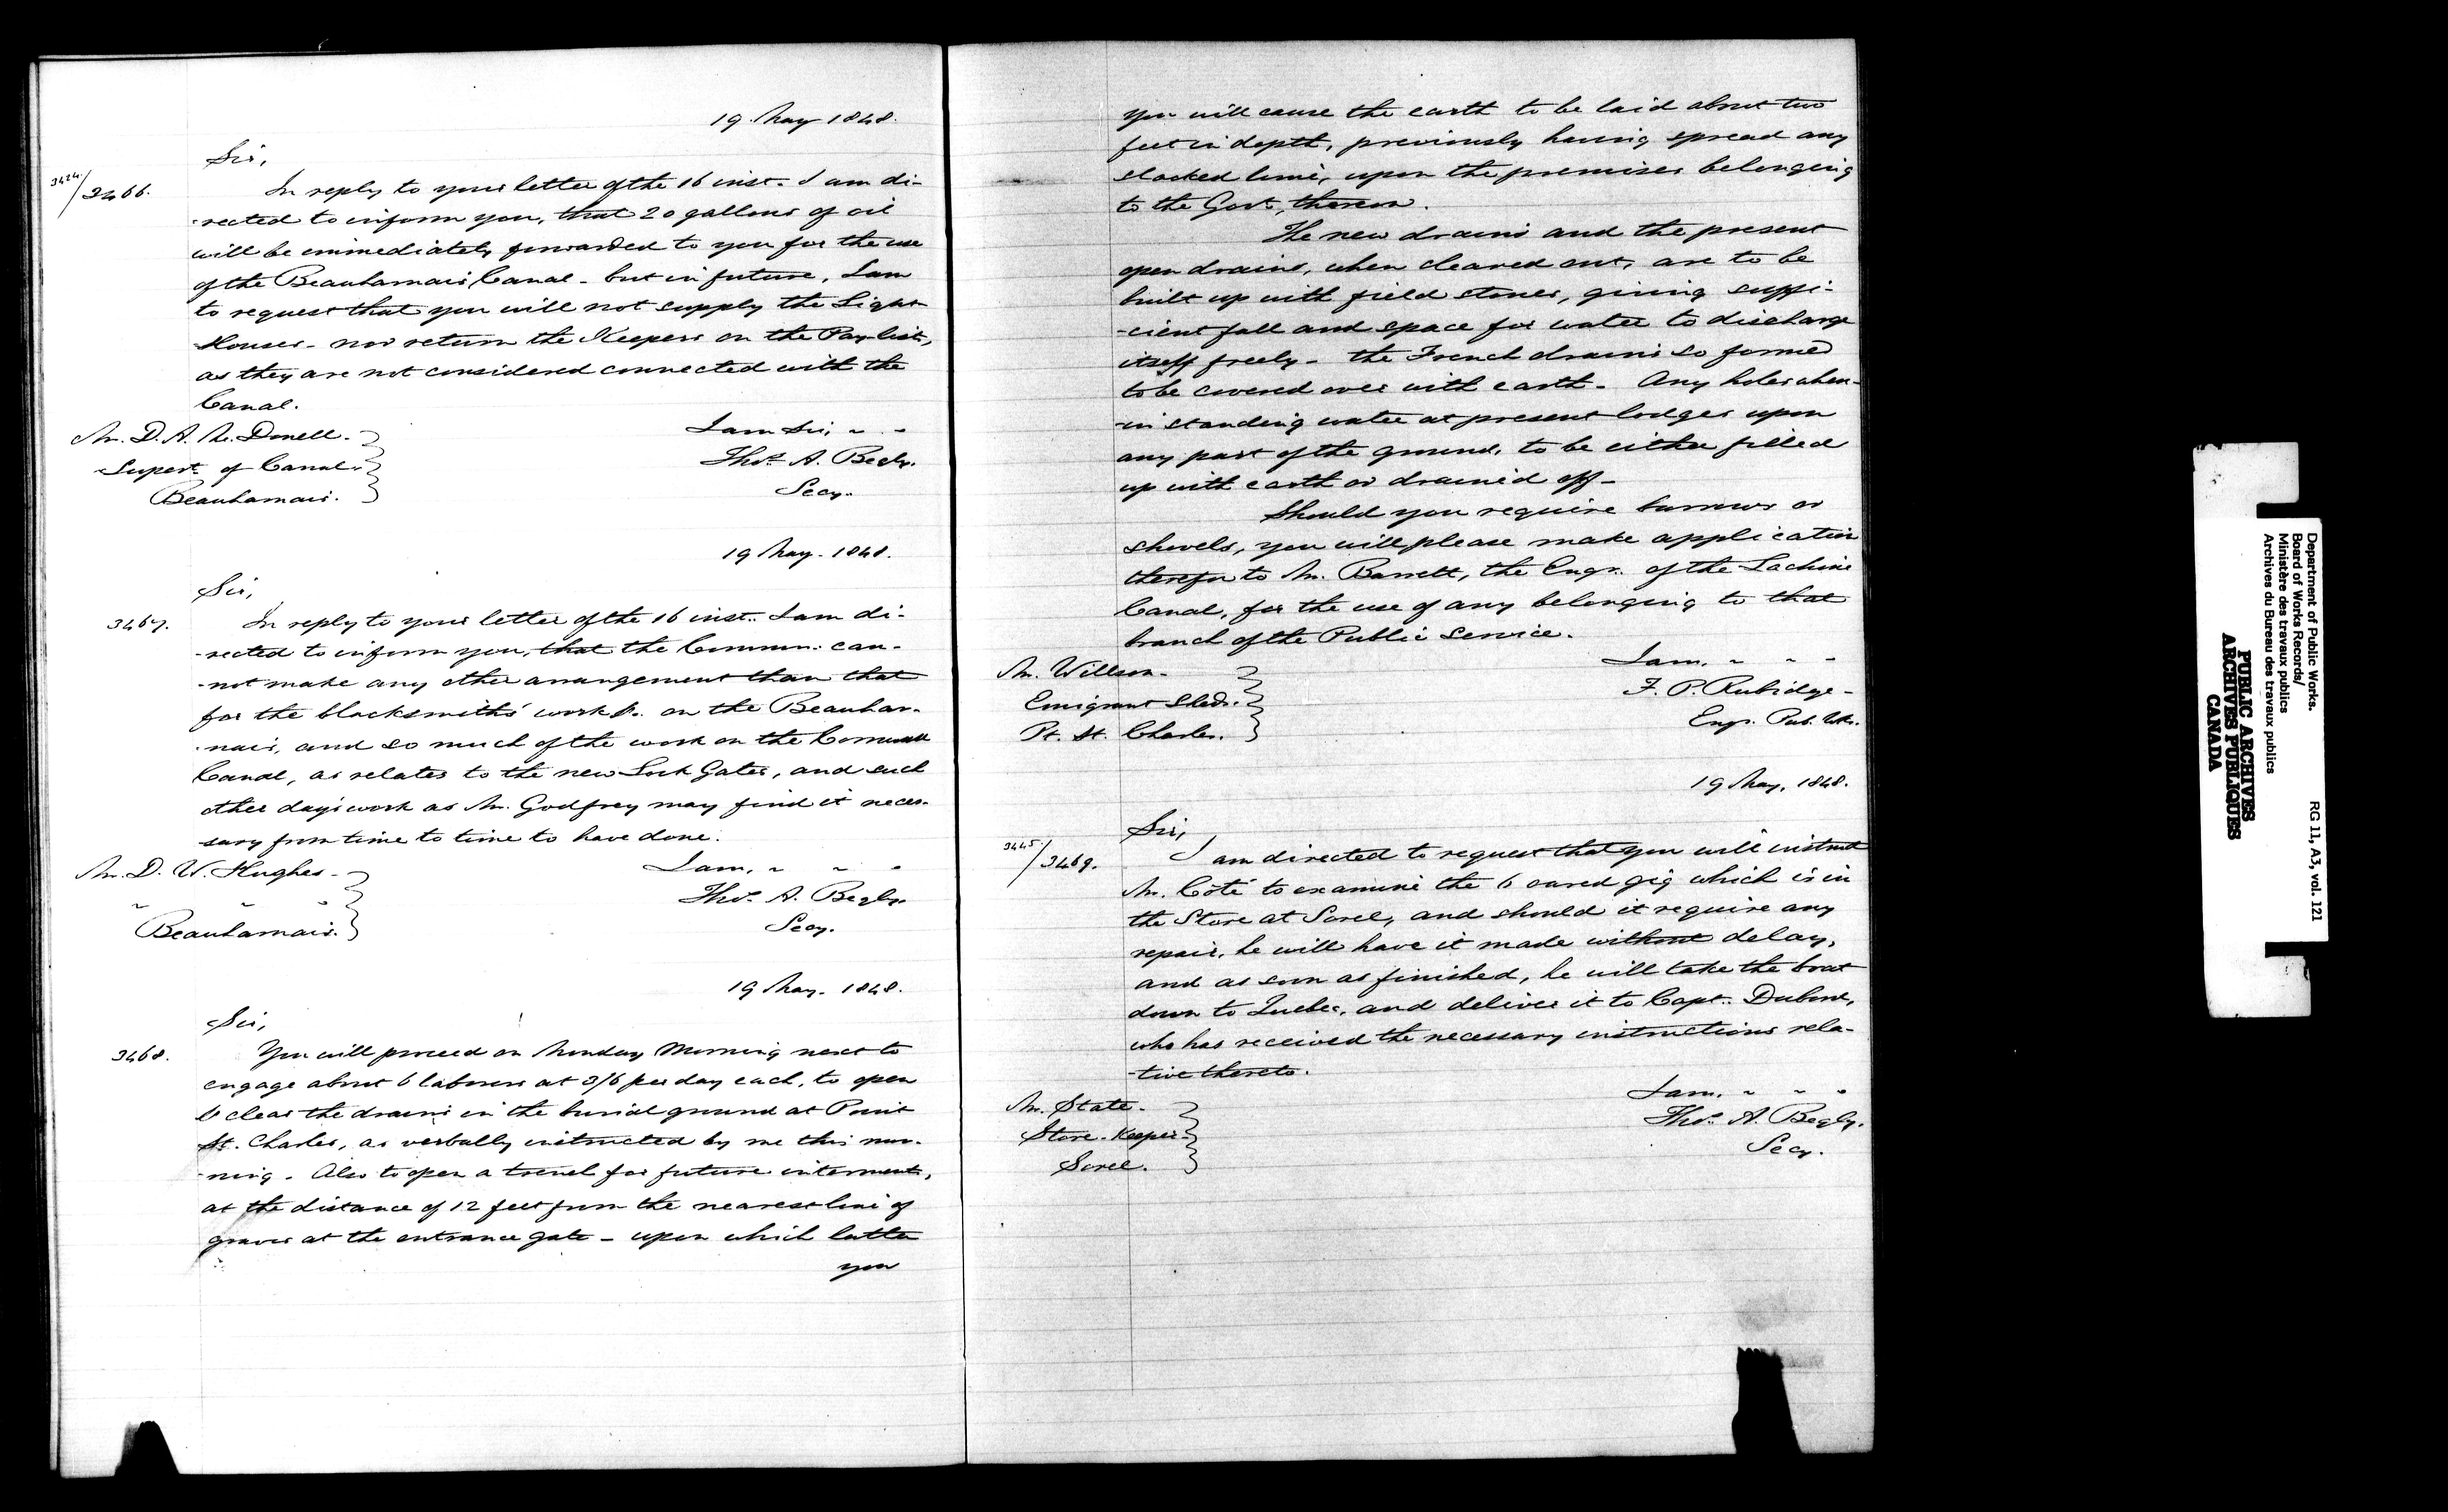 19 May 1848.
Sir,
3424/3466.
In reply to your letter of the 16 inst. I am di-
-rected to inform you, that 20 gallons of oil
will be immediately forwarded to you for the use
of the Beauharnois Canal - but in future, I am
to request that you will not supply the Light
Houses - nor return the Keepers on the Pay-lists,
as they are not considered connected with the
Canal.
I am Sir, " "
Mr. D. A. Mc Donell.
Thos. A. Begly.
Supert. of Canal.
Secy.
Beauharnais.
19 May. 1848.
Sir,
3467.
In reply to your letter of the 16 inst. I am di-
-rected to inform you, that the Commrs. can-
-not make any other arrangement than that
for the blacksmiths' work &c. on the Beauhar-
-nais, and so much of the work on the Cornwall
Canal, as relates to the new Lock Gates, and such
other day's work as Mr. Godfrey may find it neces-
sary from time to time to have done.
I am, " " "
Mr. D. W. Hughes -
Thos. A. Begly.
" " "
Secy.
Beauharnais.
19 May. 1848.
Sir,
3468.
You will proceed on Monday Morning next to
engage about 6 laborers at 3/6 per day each, to open
& clear the drains in the burial ground at Point
St. Charles, as verbally instructed by me this mor-
-ning. Also to open a trench for future interments,
at the distance of 12 feet from the nearest line of
graves at the entrance gate - upon which latter
you
you will cause the earth to be laid about two
feet in depth, previously having spread any
slacked lime, upon the premises belonging
to the Govt., thereon.
The new drains and the present
open drains, when cleared out, are to be
built up with field stones, giving suffi-
-cient fall and space for water to discharge
itself freely - the French drains so formed
to be covered over with earth - Any holes wher-
-in standing water at present lodges upon
any part of the ground, to be either filled
up with earth or drained off -
Should you require barrows or
shovels, you will please make application
therefor to Mr. Barrett, the Engr. of the Lachine
Canal, for the use of any belonging to that
branch of the Public Service.
I am, " " "
Mr. Willson.
F. P. Rubidge -
Emigrant Sheds.
Engr. Pub. Wks.
Pt. St. Charles.
19 May, 1848.
Sir,
3445/3469.
I am directed to request that you will instruct
Mr. Côté to examine the 6 oared gig which is in
the Store at Sorel, and should it require any
repair, he will have it made without delay,
and as soon as finished, he will take the boat
down to Quebec, and deliver it to Capt.
who has received the necessary instructions rela-
-tive thereto.
I am, " " "
Mr. State.
Thos. A. Begly.
Store-Keeper
Secy.
Sorel.
Department of Public Works.
Board of Works Records/
Ministère des travaux publics
Archives du Bureau des travaux publics
RG 11, A3, vol. 121
PUBLIC ARCHIVES
ARCHIVES PUBLIQUES
CANADA